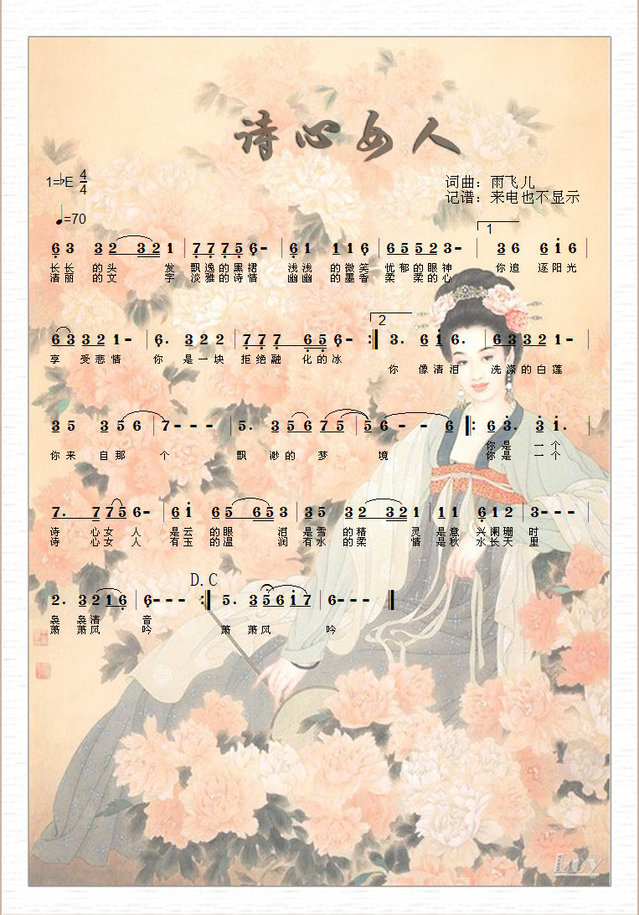 诗心女人
1=♭E 4/4
词曲：雨飞儿
记谱：来电也不显示
♩=70
1
6 3 3 2 3 2 1 | 7 7 7 5 6 - | 6 1 1 1 6 | 6 5 5 2 3 - | 3 6 6 i 6
长长 的头 发 飘逸的黑裙 浅浅 的微笑 忧郁的眼神 你追 逐阳光
清丽 的文 字 淡雅的诗情 幽幽 的墨香 柔柔的心
2
6 3 3 2 1 - | 6. 3 2 2 | 7 7 7 6 5 6 | 6 - - - :| 3. 6 i 6. | 6 3 3 2 1 -
享 受悲情 你 是一块 拒绝融 化的冰
你 像清泪 洗涤的白莲
3 5 3 5 6 | 7 - - - | 5. 3 5 6 7 5 | 5 6 - - 6 |: 6 3. 3 i.
你来 自那 个 飘 渺的 梦 境 你是 一个
你是 一个
7. 7 7 5 6 - | 6 i 6 5 6 5 3 | 3 5 3 2 3 2 1 | 1 1 6 1 2 | 3 - - -
诗 心女 人 是云 的眼 泪 是雪 的精 灵 是意 兴阑珊 时
诗 心女 人 有玉 的温 润 有水 的柔 情 是秋 水长天 里
D.C
2. 3 2 1 6 | 6 - - - :| 5. 3 5 6 i 7 | 6 - - -
袅 袅清 音
萧 萧风 吟 萧 萧风 吟